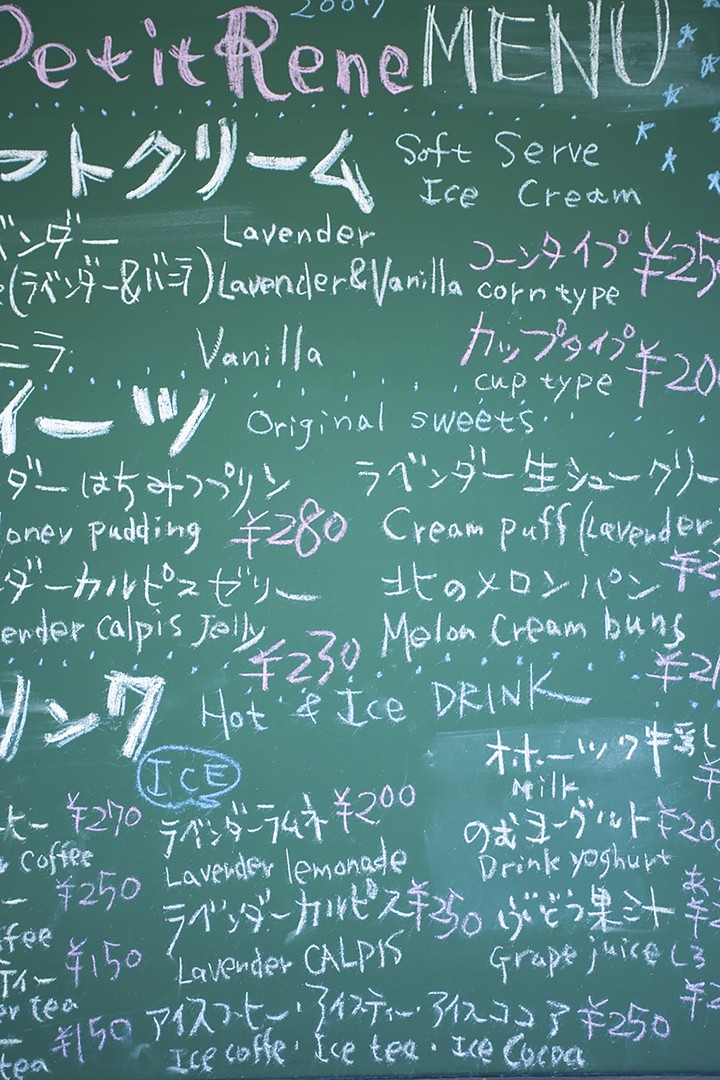 2007
Petit Rene MENU
フトクリーム Soft Serve
Ice Cream
ベンダー Lavender
(ラベンダー&バニラ) Lavender&Vanilla
コーンタイプ ¥250
corn type
ニラ Vanilla
カップタイプ ¥200
cup type
イーツ Original sweets
ダーはちみつプリン
oney pudding ¥280
ラベンダー生シュークリー
Cream puff (Lavender
ダーカルピスゼリー
ender calpis Jelly
¥230
北のメロンパン
Melon Cream buns
リンク Hot & Ice DRINK
ICE
ーヒー ¥270
coffee
ー ¥250
ffee
ティー ¥150
er tea
¥150
tea
ラベンダーラムネ ¥200
Lavender lemonade
ラベンダーカルピス ¥250
Lavender CALPIS
アイスコーヒー・アイスティー・アイスココア ¥250
Ice coffe・Ice tea・Ice Cocoa
オホーツク牛乳
Milk
のむヨーグルト ¥200
Drink yoghurt
ぶどう果汁
Grape juice